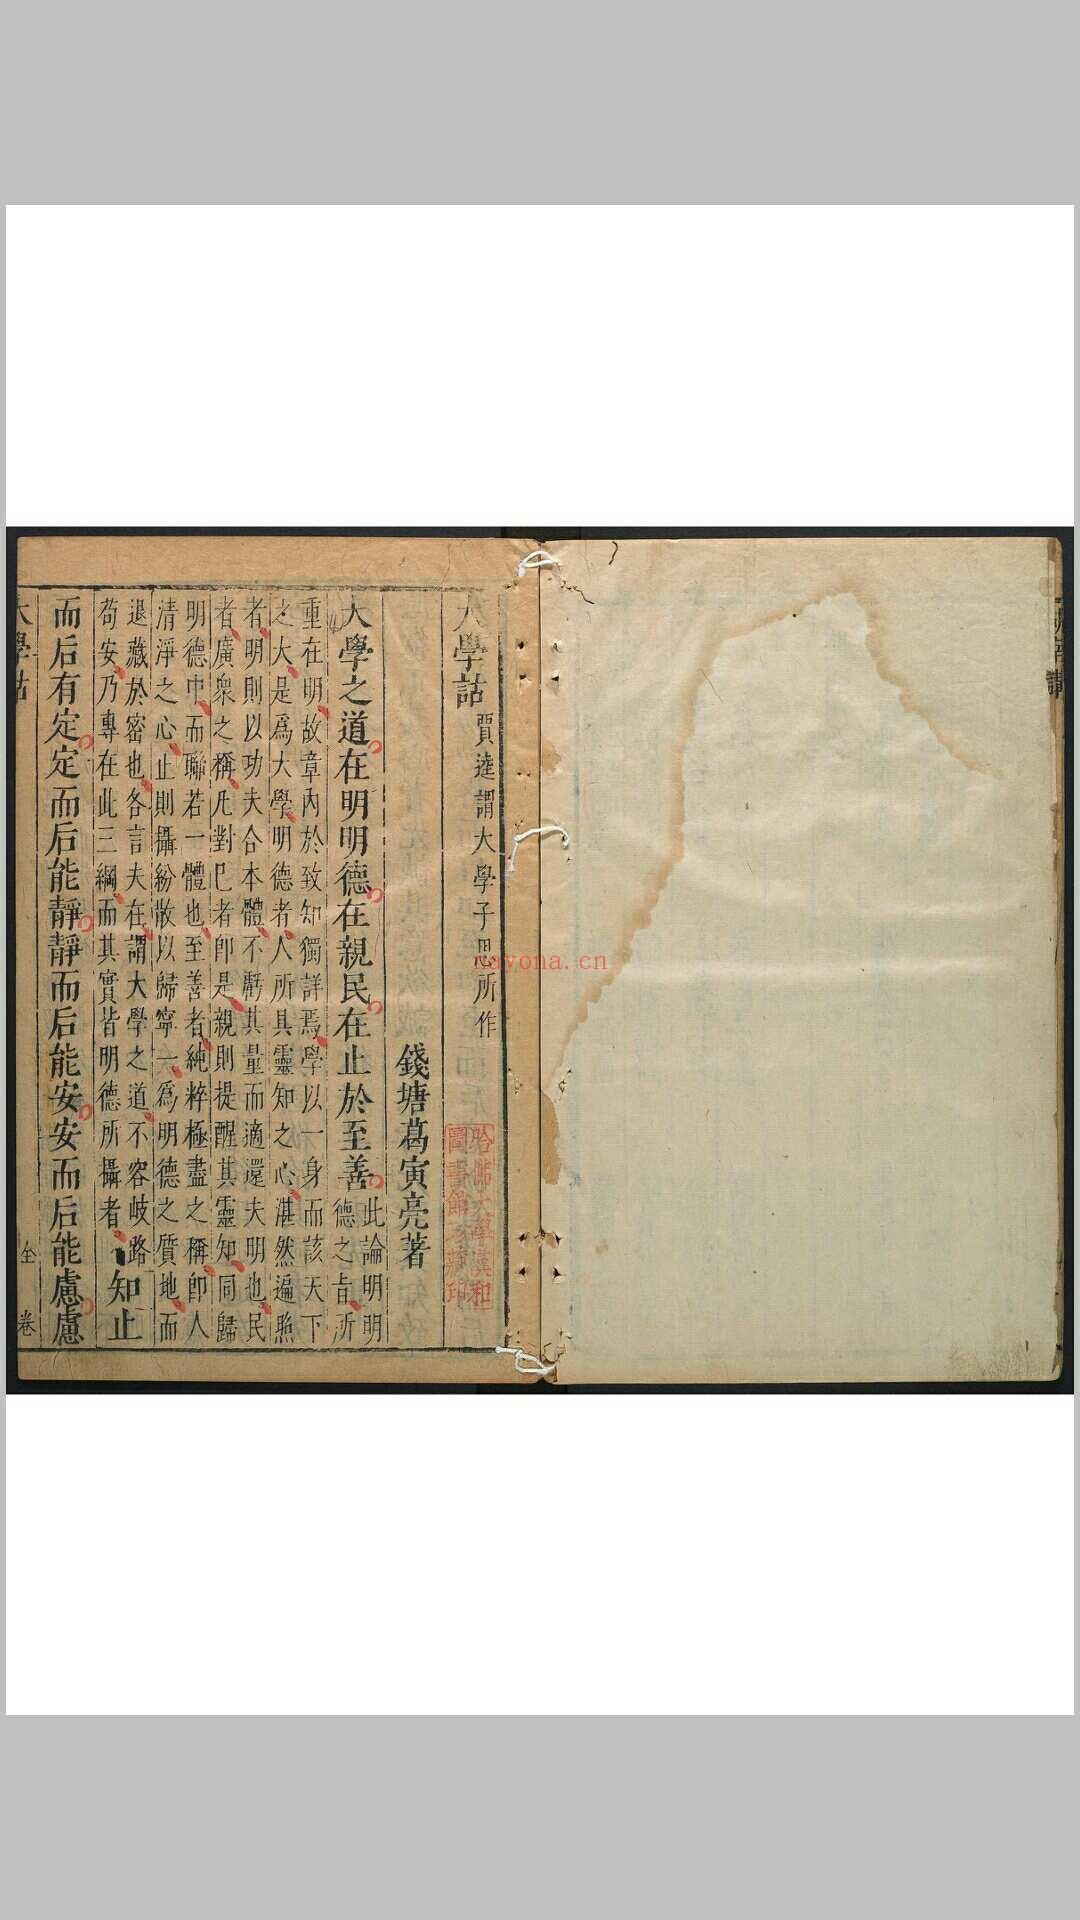 大學詁 賈逵謂大學子思所作
錢塘葛寅亮著
大學之道在明明德在親民在止於至善此論明明
德之旨所
重在明故章內於致知獨詳焉學以一身而該天下
之大是爲大學明德者人所具靈知之心湛然遍照
者明則以功夫合本體不虧其量而適還夫明也民
者廣衆之稱凡對巳者卽是親則提醒其靈知同歸
明德中而聯若一體也至善者純粹極盡之稱卽人
清淨之心止則攝紛散以歸寧一爲明德之質地而
退藏於密也各言夫在謂大學之道不容岐路
苟安乃專在此三綱而其實皆明德所攝者
知止
而后有定定而后能靜靜而后能安安而后能慮慮
大學詁
全
卷
哈佛大學漢和
圖書館珍藏印
nayona.cn